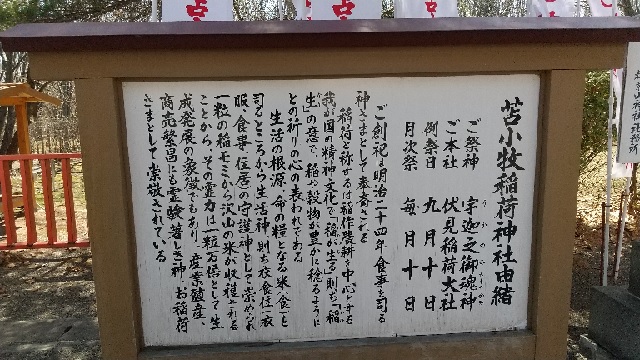 苫小牧稲荷神社由緒
ご祭神 宇迦之御魂神
うかのみたまのかみ
ご本社 伏見稲荷大社
例祭日 九月十日
月次祭 毎月十日
ご創祀は明治二十四年食事を司る
神さまとして奉斎される
稲荷と称せるは稲作農耕を中心とする
我が国の精神文化で「稲が生る」則ち「稲
生」の意で、稲や穀物が豊かに稔るように
との祈りの心の表われである
生活の根源、命の糧となる米(食)と
司るところから生活神、則ち衣食住(衣
服・食事・住居)の守護神として崇められ
一粒の稲モミから沢山の米が収穫される
ことから、その霊力は一粒万倍として、生
成発展の象徴でもあり、産業殖産、
商売繁昌にも霊験著しき神"お稲荷
さま"として崇敬されている